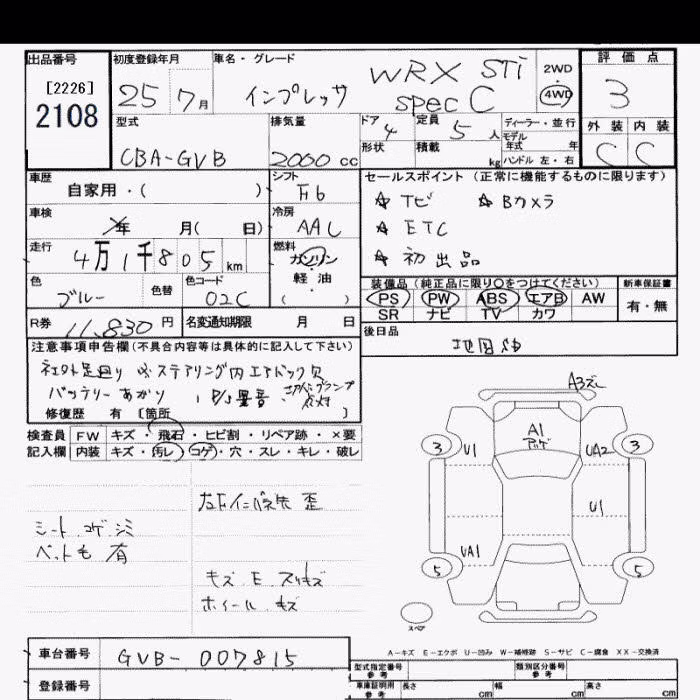 出品番号 初度登録年月 車名・グレード 評価点
[2226] 2108 25 7月 インプレッサ WRX STi spec C 2WD 4WD 3
型式 排気量 ドア 定員 ディーラー・並行 外装 内装
CBA-GVB 2000 cc 4 5 人 モデル年式 年 C C
形状 積載 kg ハンドル 左・右
車歴 シフト セールスポイント (正常に機能するものに限ります)
自家用・( ) F6 ☆ TV ☆ Bカメラ
車検 冷房 ☆ ETC
年 月( 日) AAC ☆ 初出品
走行 燃料
4万1千805 km ガソリン・軽油 ( )
装備品 (純正品に限り○をつけてください) 新車保証書
色 色替 色コード PS PW ABS エアB AW 有・無
ブルー 02C SR ナビ TV カワ
R券 11,830 円 名変通知期限 月 日 後日品
注意事項申告欄 (不具合内容等は具体的に記入して下さい)
社外足廻り ステアリング内エアバッグ欠
バッテリーあがり
修復歴 有 [箇所 ]
検査員 FW キズ・飛石・ヒビ割・リペア跡・×要
記入欄 内装 キズ・汚レ・コゲ・穴・スレ・キレ・破レ
シート コゲ シミ
ペット毛 有
キズ E スリキズ
ホイール キズ
A1
U1 UA2
3 3
U1
UA1
5 5
スペア
A−キズ E−エクボ U−凹み W−補修跡 S−サビ C−腐食 XX−交換済
車台番号 GVB- 007815 型式指定番号 参考 類別区分番号 参考
登録番号 車庫証明用 参考 長さ cm 幅 cm 高さ cm